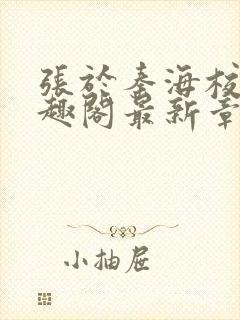 張於秦海校
趣閣最新章
小抽屉